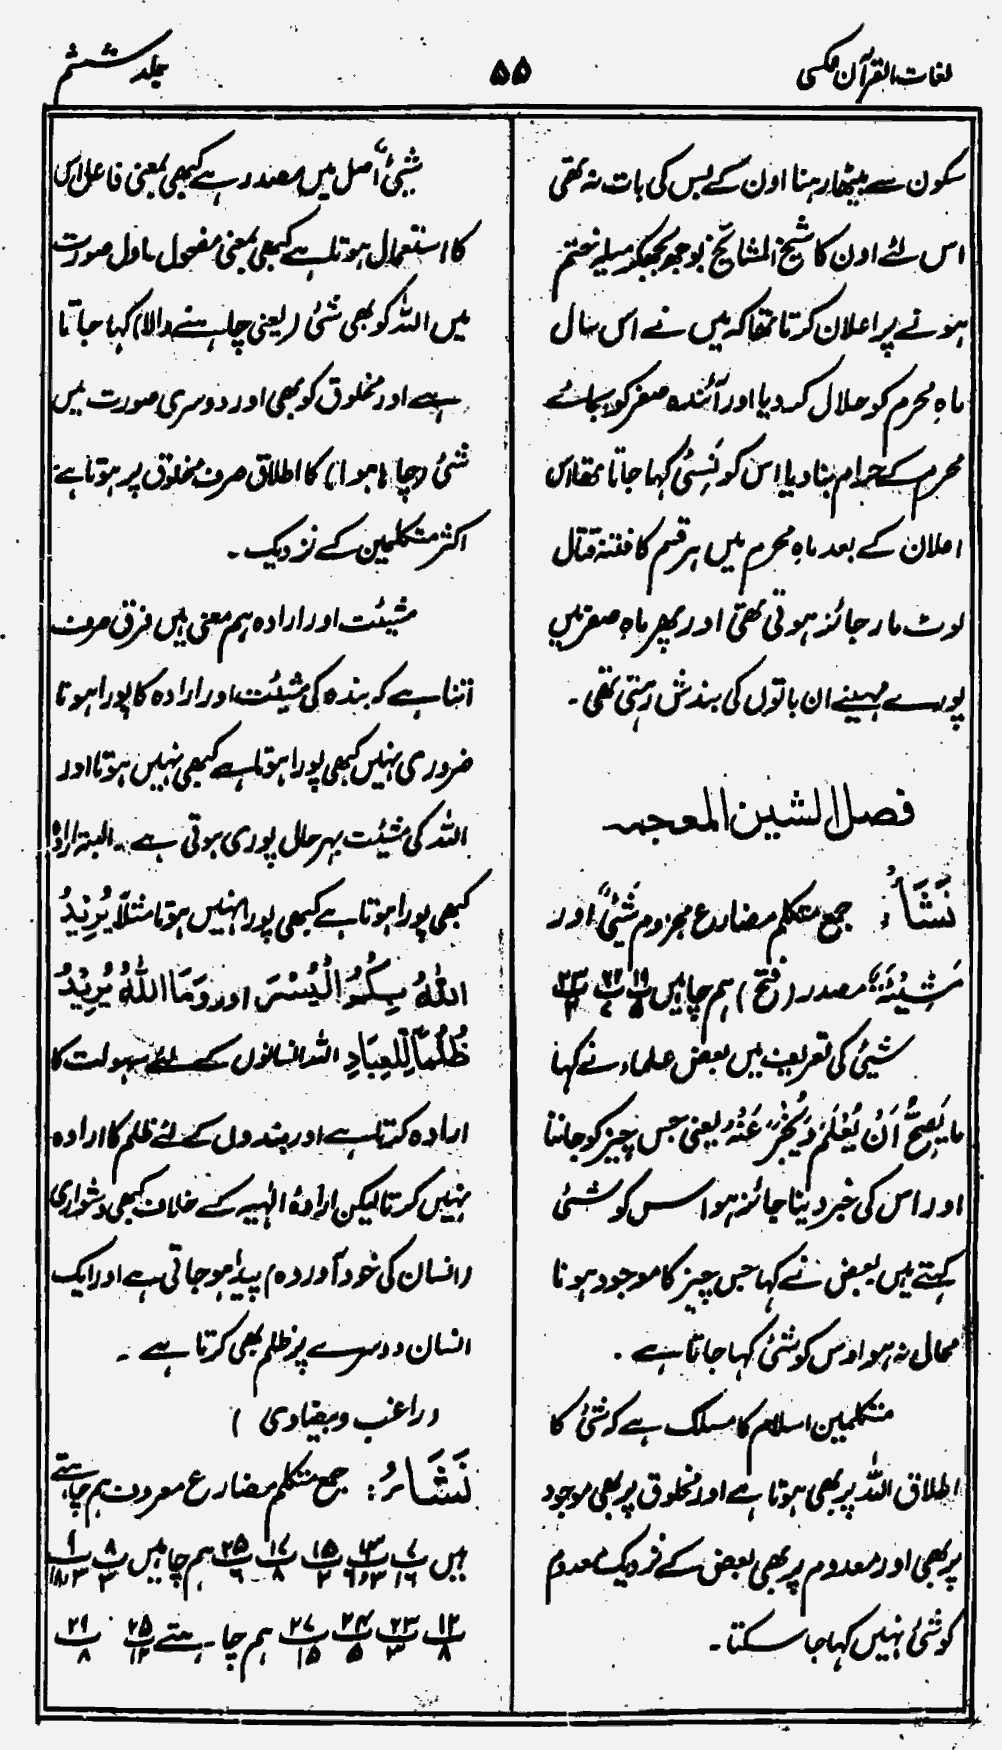 لغات القرآن عکسی
۵۵
جلد ششم
سکون سے بیٹھا رہنا اون کے بس کی بات نہ تھی
اس لئے اون کا شیخ المشائخ بوجو میلہ ختم
ہونے پر اعلان کرتا تھا کہ میں نے اس سال
ماہِ محرم کو حلال کر دیا اور آئندہ صفر کو بجائے
محرم کے حرام بنا دیا اس کو نَسِئی کہا جاتا تھا اس
اعلان کے بعد ماہِ محرم میں ہر قسم کا فتنہ قتال
لوٹ مار جائز ہوتی تھی اور پھر ماہِ صفر میں
پورے مہینے ان باتوں کی بندش رہتی تھی۔
فصل الشین المعجمہ
نَشَاْءُ: جمع متکلم مضارع مجزوم شَیْئٌ اور
مَشِیْئَۃٌ مصدر (فتح) ہم چاہیں پ۱۹ پ۲۲ پ۲۳
شیئ کی تعریف میں بعض علماء نے کہا
مایَصِحُّ اَنْ یُعْلَمَ وَیُخْبَرَ عَنْہُ یعنی جس چیز کو جاننا
اور اس کی خبر دینا جائز ہو اس کو شئ
کہتے ہیں بعض نے کہا جس چیز کا موجود ہونا
محال نہ ہو اوس کو شئ کہا جاتا ہے۔
متکلمین اسلام کا مسلک ہے کہ شئ کا
اطلاق اللہ پر بھی ہوتا ہے اور مخلوق پر بھی موجود
پر بھی اور معدوم پر بھی بعض کے نزدیک معدوم
کو شئ نہیں کہا جا سکتا۔
شیئ اصل میں مصدر ہے کبھی بمعنی فاعل اس
کا استعمال ہوتا ہے کبھی بمعنی مفعول۔ اول صورت
میں اللہ کو بھی شئ (یعنی چاہنے والا) کہا جاتا
ہے اور مخلوق کو بھی اور دوسری صورت میں
شئ (چاہا ہوا) کا اطلاق صرف مخلوق پر ہوتا ہے
اکثر متکلمین کے نزدیک۔
مشیئت اور ارادہ ہم معنی ہیں فرق صرف
اتنا ہے کہ بندہ کی مشیئت اور ارادہ کا پورا ہونا
ضروری نہیں کبھی پورا ہوتا ہے کبھی نہیں ہوتا اور
اللہ کی مشیئت بہرحال پوری ہوتی ہے۔ البتہ ارادہ
کبھی پورا ہوتا ہے کبھی پورا نہیں ہوتا مثلًا یُرِیْدُ
اللّٰہُ بِکُمُ الْیُسْرَ اور وَمَا اللّٰہُ یُرِیْدُ
ظُلْمًا لِّلْعِبَادِ اللہ انسانوں کے لئے سہولت کا
ارادہ کرتا ہے اور بندوں کے لئے ظلم کا ارادہ
نہیں کرتا لیکن ارادۂ الٰہیہ کے خلاف کبھی دشواری
(انسان کی خود آوردہ) پیدا ہو جاتی ہے اور ایک
انسان دوسرے پر ظلم بھی کرتا ہے۔
(راغب و بیضاوی)
نَشَاءُ: جمع متکلم مضارع معروف ہم چاہتے
ہیں پ۷/۱۶ پ۱۳ پ۱۵/۲ پ۱۷/۸ پ۲۵/۶ ہم چاہیں پ۸/۳ پ۹
پ۱۲/۸ پ۲۳/۳ پ۲۴/۵ پ۲۷/۱۵ ہم چاہتے پ۲۵/۱۲ پ۲۱/۸